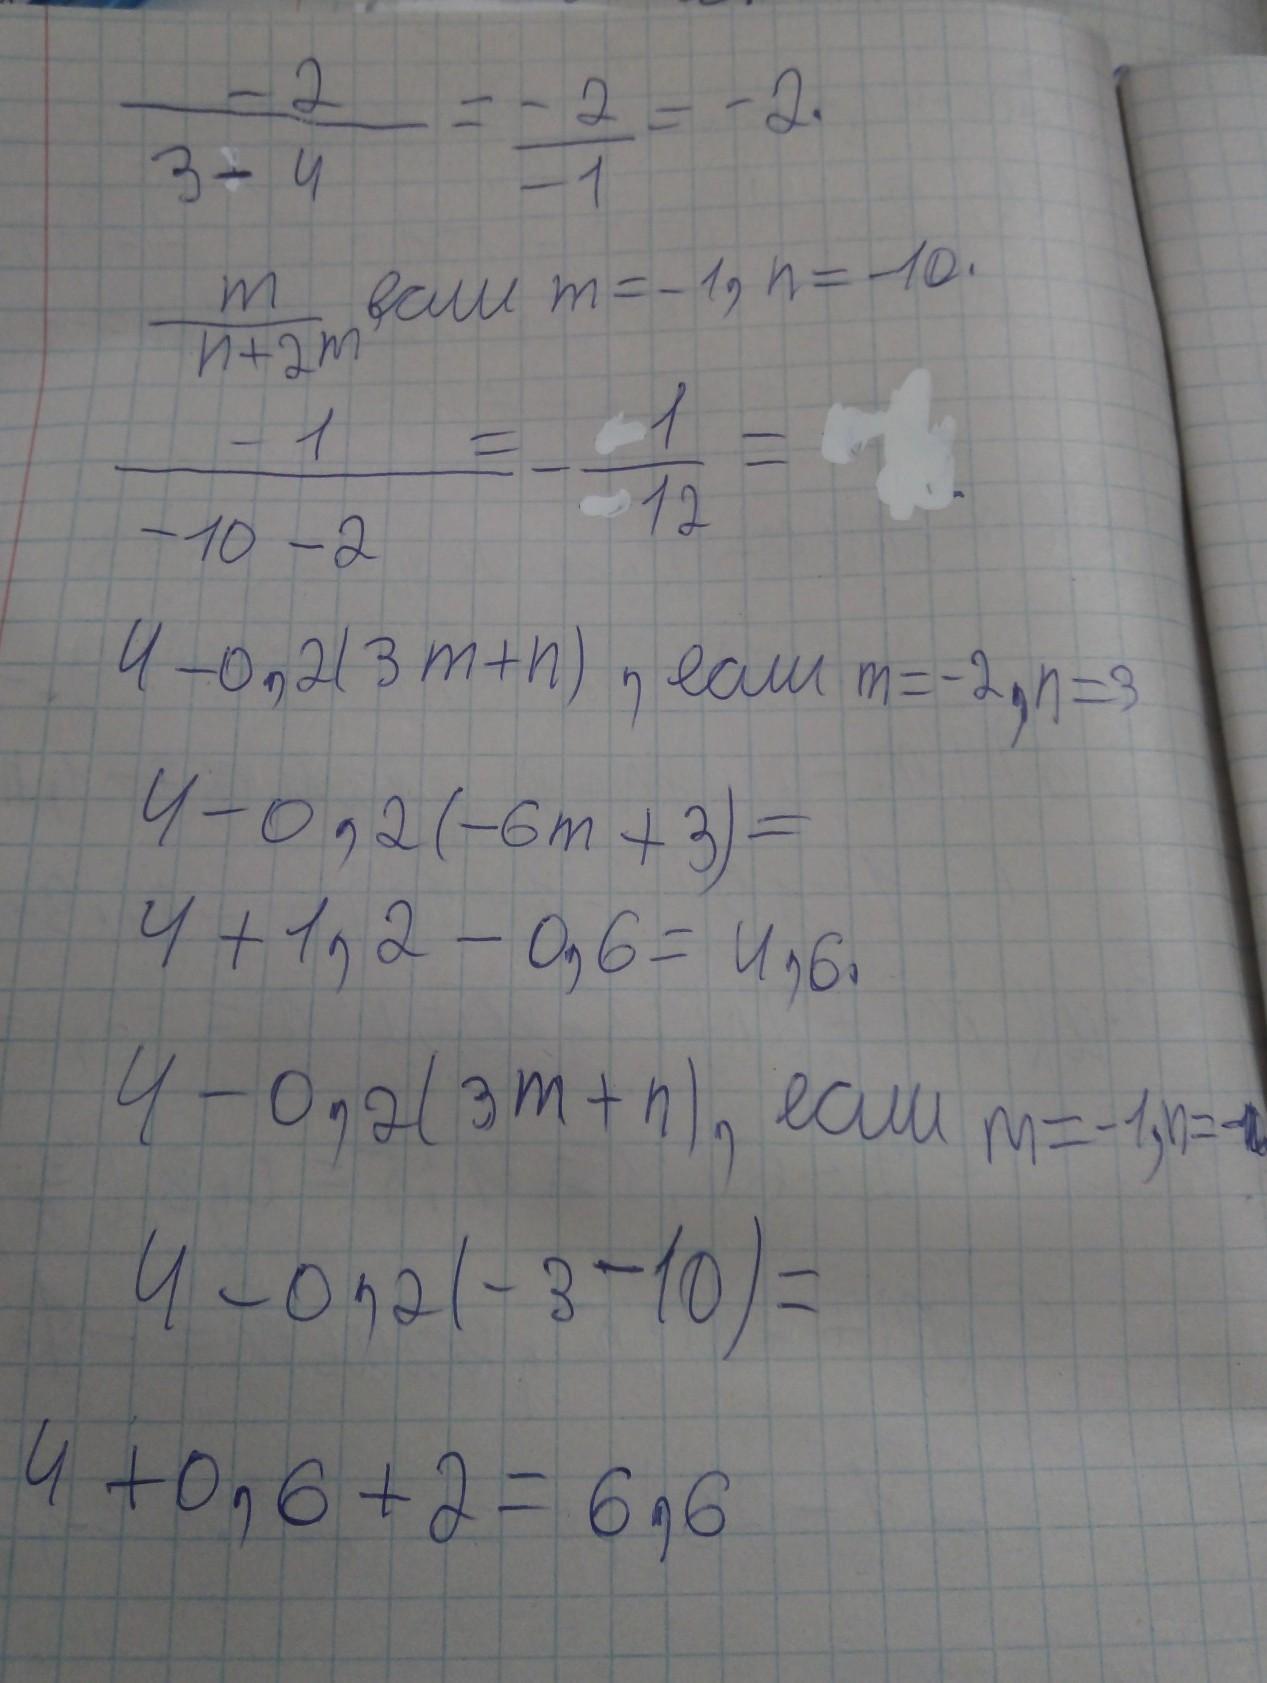 -2/(3-4) = -2/-1 = -2.
m/(n+2m) если m=-1, n=-10.
-1/(-10-2) = -1/12 =
4-0,2(3m+n), если m=-2, n=3
4-0,2(-6m+3)=
4+1,2-0,6=4,6.
4-0,2(3m+n), если m=-1, n=-
4-0,2(-3-10)=
4+0,6+2=6,6